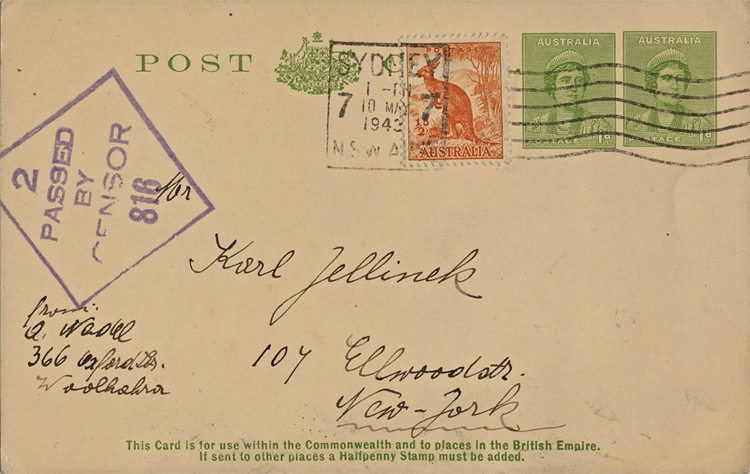 POST
SYDNEY
1 - PM
7 10 MAY 7
1943
N.S.W. A
POSTAGE
½D
AUSTRALIA
AUSTRALIA
POSTAGE 1D
AUSTRALIA
POSTAGE 1D
2
PASSED
BY
CENSOR
816
Mr
Karl Jellinek
from:
A. Nadel
366 Oxfordstr.
Woollahra
107 Ellwoodstr.
New-York
This Card is for use within the Commonwealth and to places in the British Empire.
If sent to other places a Halfpenny Stamp must be added.